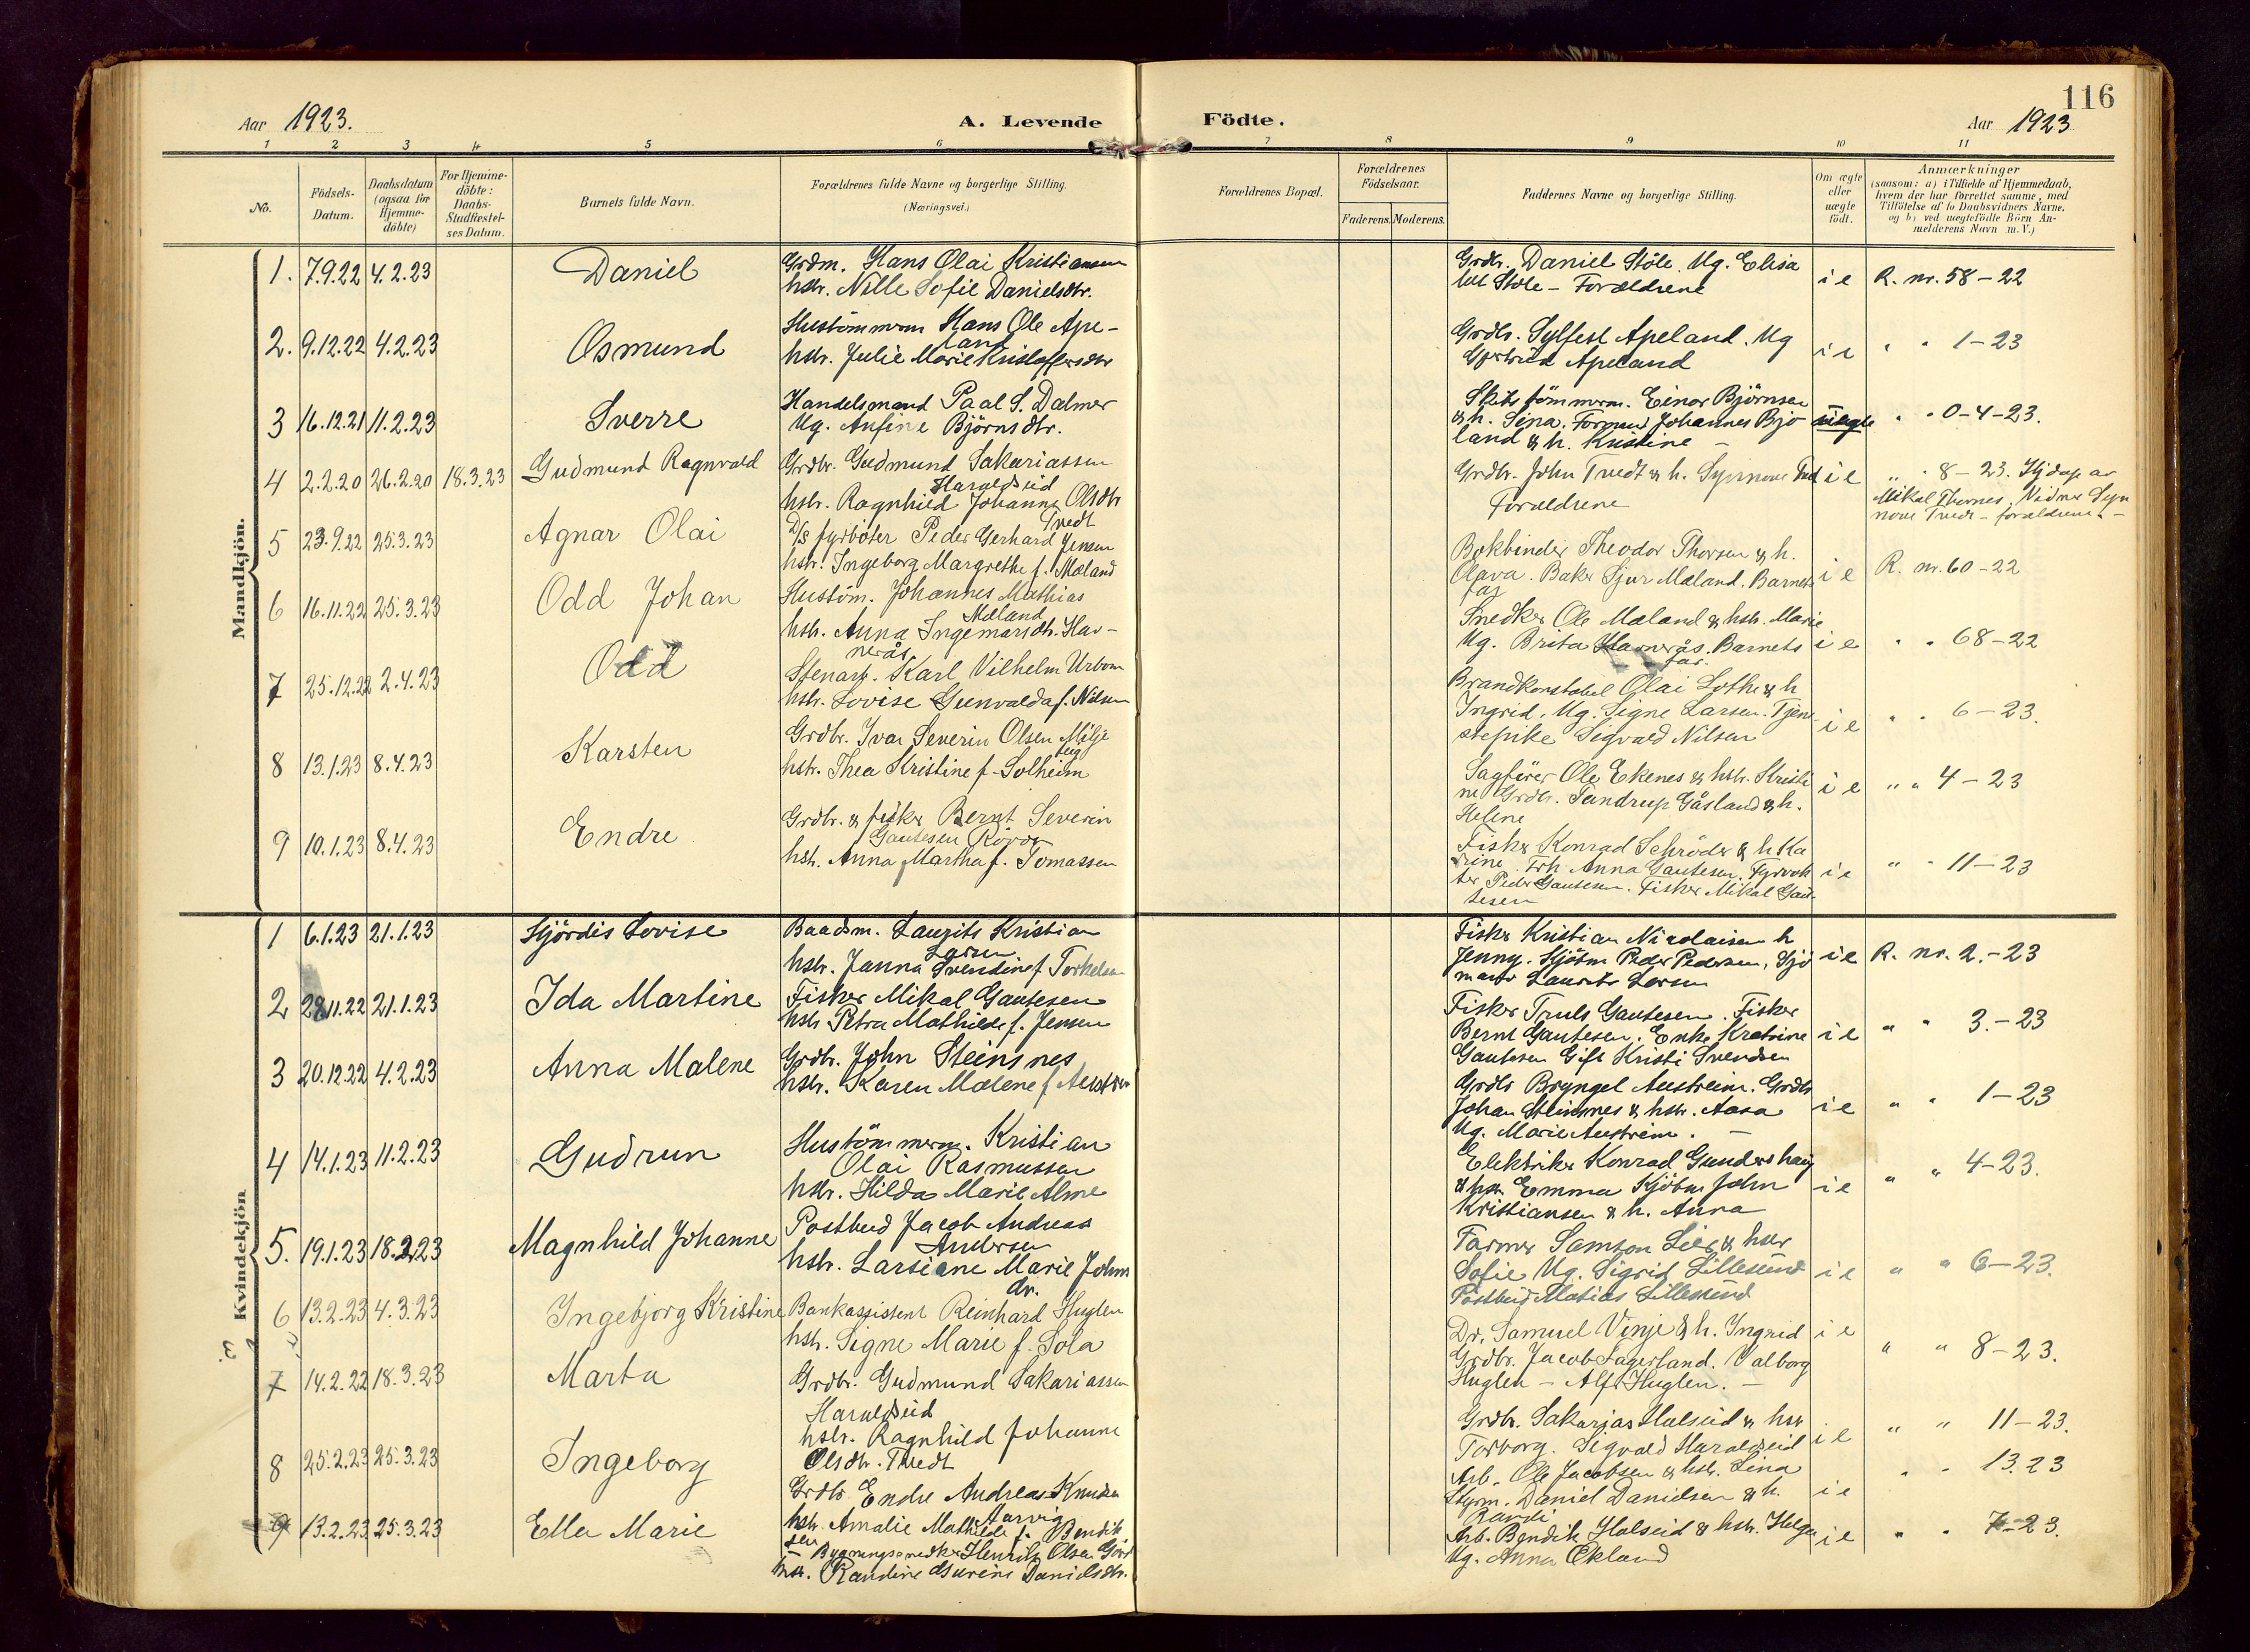 116
Aar 1923. A. Levende Födte. Aar 1923
1 2 3 4 5 6 7 8 9 10 11
No.
Födsels-
Datum.
Daabsdatum
(ogsaa for
Hjemme-
döbte)
For Hjemme-
döbte:
Daabs-
Stadfæstel-
ses Datum.
Barnets fulde Navn.
Forældrenes fulde Navne og borgerlige Stilling.
(Næringsvei.)
Forældrenes Bopæl.
Forældrenes
Födselsaar.
Faderens. Moderens.
Faddernes Navne og borgerlige Stilling.
Om ægte
eller
uægte
födt.
Anmærkninger
(saasom: a) i Tilfælde af Hjemmedaab,
hvem der har forrettet samme, med
Tilföielse af to Daabsvidners Navne,
og b) ved uegtefödte Börn An-
melderens Navn m. V.)
Mandkjön.
1. 7.9.22 4.2.23 Daniel
Grdm. Hans Olai Kristiansen
hstr. Nille Sofie Danielsdtr.
Grdbr. Daniel Stöle. Ug. Elisa
Stöle - Forældrene
i e R. nr. 58-22
2. 9.12.22 4.2.23 Osmund
Hustömmerm Hans Ole Ape-
land
hstr. Julie Marie Kristoffersdtr
Grdbr. Sylfest Apeland. Ug
Gjertrud Apeland
i e " " 1-23
3 16.12.21 11.2.23 Sverre
Handelsmand Paal S. Dalmer
Ug. Anfine Björnsdtr.
Skibstömmerm. Einar Björnsen
& h. Sina. Formand Johannes Bjo
land & h. Kristine -
uægte " " 0-4-23.
4 2.2.20 26.2.20 18.3.23 Gudmund Ragnvald
Grdbr. Gudmund Sakariassen
Haraldseid
hstr. Ragnhild Johanne Olsdtr
Tvedt
Grdbr. John Tvedt & h. Synnove Tved
Forældrene
i e " " 8-23. Hjdøp av
Mikal Thornes. Vidner Syn
nove Tvedt - forældrene -
5 23.9.22 25.3.23 Agnar Olai
D/S fyrböter Peder Gerhard Jensen
hstr. Ingeborg Margrethe f. Mæland
Bokbinder Theodor Thorsen & h.
Olava. Baker Sjur Mæland. Barnets
far
i e R. nr. 60-22
6 16.11.22 25.3.23 Odd Johan
Hustöm. Johannes Mathias
Mæland
hstr. Anna Ingemarsdtr. Hav-
nerås
Snedker Ole Mæland & hstr. Marie
Ug. Brita Havnerås. Barnets
far.
i e " " 68-22
7 25.12.22 2.4.23 Odd
Stenarb. Karl Vilhelm Urbom
hstr. Lovise Gunvalda f. Nilsen
Brandkonstabel Olai Lothe & h
Ingrid. Ug. Signe Larsen. Tjene
stepike Sigvald Nilsen
i e " " 6-23.
8 13.1.23 8.4.23 Karsten
Grdbr. Ivar Severin Olsen Milje
teig
hstr. Thea Kristine f. Solheim
Sagförer Ole Ekenes & hstr. Kristi
ne Grdbr. Tandrup Gåsland & h.
Helene
i e " " 4-23
9 10.1.23 8.4.23 Endre
Grdbr. & fisker Bernt Severin
Gautesen Rövær
hstr. Anna Martha f. Tomassen
Fisker Konrad Schröder & h Ka
trine. Frk Anna Gautesen. Fyrvok
ter Peder Gautesen. Fisker Mikal Gau-
tesen
i e " " 11-23
Kvindekjön
1 6.1.23 21.1.23 Hjördis Lovise
Baadsm. Laurits Kristian
Larsen
hstr. Janna Svendine f. Torkelsen
Fisker Kristian Nicolaisen h
Jenny. Sjöbm Peder Pedersen, Sjö
mand Laurits Larsen
i e R. nr. 2.-23
2 28.11.22 21.1.23 Ida Martine
Fisker Mikal Gautesen
hstr Petra Mathilde f. Jensen
Fisker Truls Gautesen. Fisker
Bernt Gautesen. Enke Katrine
Gautesen Gift Kristi Svendsen
i e " " 3.-23
3 20.12.22 4.2.23 Anna Malene
Grdbr. John Steinsnes
hstr. Karen Malene f Austrei
Grdbr Bryngel Austreim. Grdbr
Johan Steinsnes & hstr. Aasa
Ug. Marie Austreim. -
i e " " 1-23
4 14.1.23 11.2.23 Gudrun
Hustömmerm. Kristian
Olai Rasmussen
hstr. Hilda Marie Alme
Elektriker Konrad Gundershaug
& hstr Emma Kjöbm John
Kristiansen & h. Anna
i e " " 4-23.
5. 19.1.23 18.2.23 Magnhild Johanne
Postbud Jacob Andreas
Andersen
hstr. Larsiane Marie Johns
dtr.
Farmer Samson Lier & hstr
Sofie Ug. Sigrid Lillesund
Postbud Matias Lillesund
i e " " 6-23.
6 13.2.23 4.3.23 Ingebjorg Kristine
Bankassistent Reinhard Huglen
hstr. Signe Marie f. Sola
Dr. Samuel Vinje & h. Ingrid
Grdbr. Jacob Fagerland. Valborg
Huglen - Alf Huglen. -
i e " " 8-23.
7 14.2.22 18.3.23 Marta
Grdbr. Gudmund Sakariassen
Haraldseid
hstr. Ragnhild Johanne
Olsdtr. Tvedt
Grdbr. Sakarias Halseid & hstr
Torborg. Sigvald Haraldseid
i e " " 11-23.
8 25.2.23 25.3.23 Ingeborg
Grdbr Endre Andreas Knudsen
Aarvig
hstr Amalie Mathilde f. Bendik
sen
Arb. Ole Jacobsen & hstr. Lina
Styrm. Daniel Danielsen & h.
Randi
i e " " 13.23
9 13.2.23 25.3.23 Ella Marie
Bygningssnedker Henrik Olsen
hstr. Randine Danielsdtr.
Arb. Bendik Halseid & hstr. Helga
Ug. Anna Økland
i e " " 7-23.